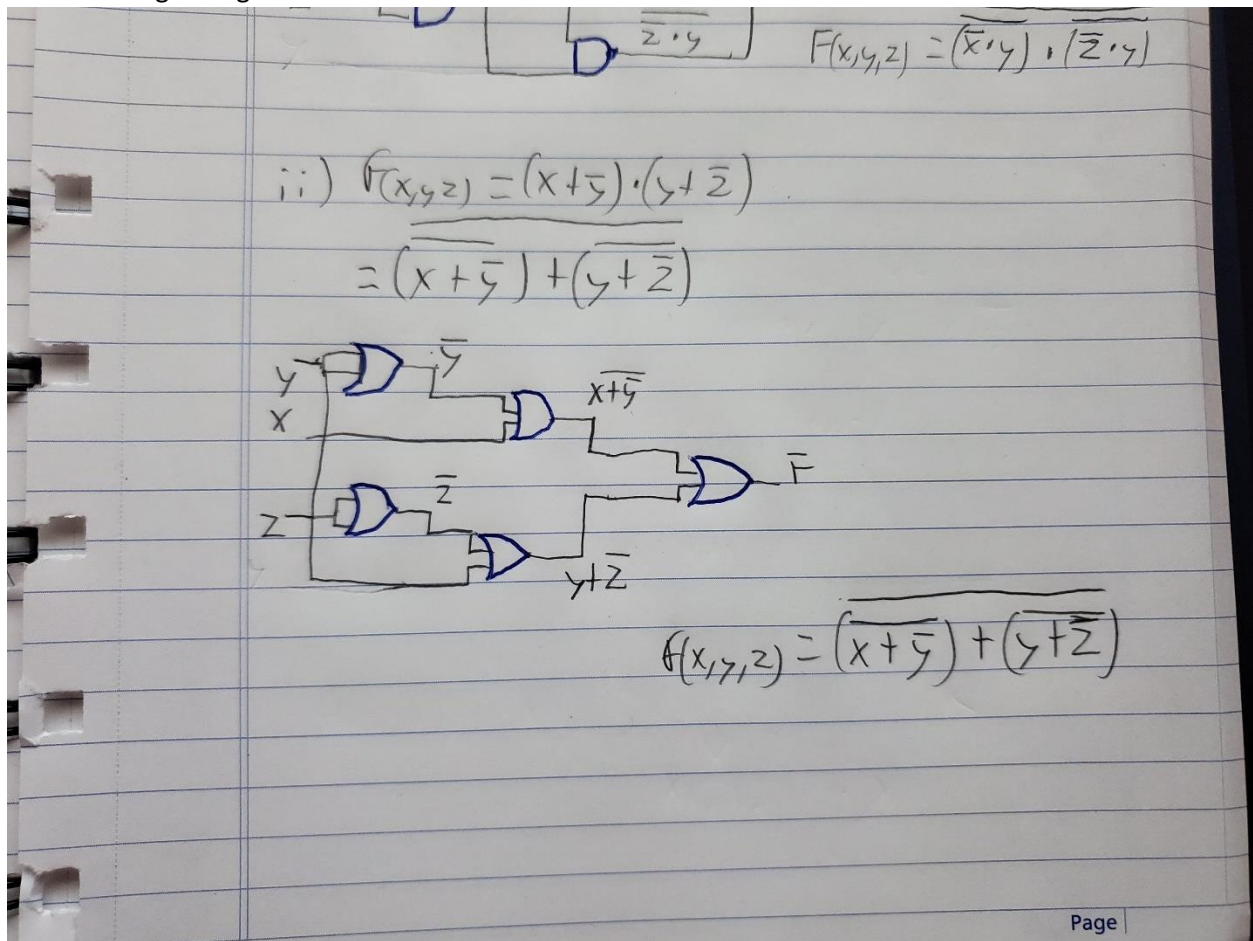 z̅·y
F(x,y,z) = \overline{(\overline{x̅·y})·(\overline{z̅·y})}
ii) F(x,y,z) = (x+y̅)·(y+z̅)
= \overline{(\overline{x+y̅})+(\overline{y+z̅})}
y
y̅
x
\overline{x+y̅}
F̅
z
z̅
y+z̅
F(x,y,z) = \overline{(\overline{x+y̅})+(\overline{y+z̅})}
Page